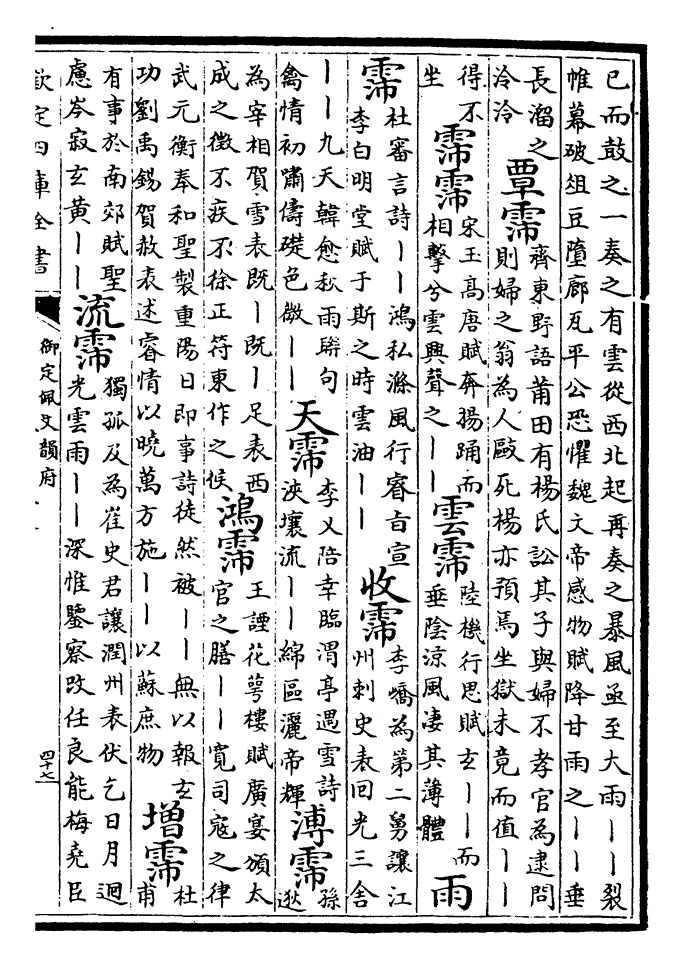 已而鼓之一奏之有雲從西北起再奏之暴風亟至大雨丨丨裂
帷幕破俎豆墮廊瓦平公恐懼魏文帝感物賦降甘雨之丨丨垂
長溜之
泠泠
覃霈
齊東野語莆田有楊氏訟其子與婦不孝官為逮問
則婦之翁為人毆死楊亦預焉坐獄未竟而值丨丨
得不
坐
霈霈
宋玉高唐賦奔揚踊而
相擊兮雲興聲之丨丨
雲霈
陸機行思賦玄丨丨而
垂陰涼風凄其薄體
雨
霈
杜審言詩丨丨鴻私滌風行睿旨宣
李白明堂賦于斯之時雲油丨丨
收霈
李嶠為第二舅讓江
州刺史表回光三舍
丨丨九天韓愈秋雨聯句
禽情初嘯儔礎色微丨丨
天霈
李乂陪幸臨渭亭遇雪詩
浹壤流丨丨綿區灑帝輝
溥霈
孫
逖
為宰相賀雪表既丨既丨足表西
成之徵不疾不徐正符東作之候
鴻霈
王諲花萼樓賦廣宴頒太
官之膳丨丨寬司寇之律
武元衡奉和聖製重陽日即事詩徒然被丨丨無以報玄
功劉禹錫賀赦表述睿情以曉萬方施丨丨以蘇庶物
增霈
杜
甫
有事於南郊賦聖
慮岑寂玄黃丨丨
流霈
獨孤及為崔史君讓潤州表伏乞日月迴
光雲雨丨丨深惟鑒察改任良能梅堯臣
欽定四庫全書
御定佩文韻府
四十七